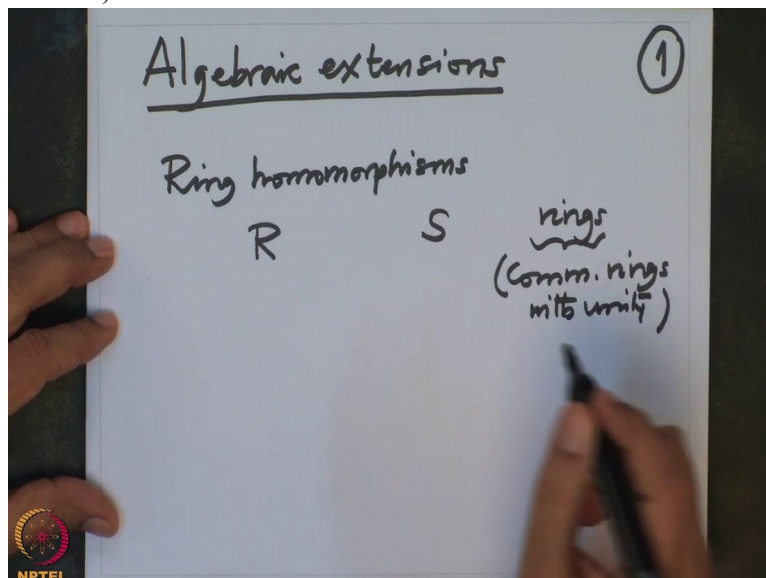 Algebraic extensions
1
Ring homomorphisms
R S rings
(Comm. rings
with unity)
NPTEL